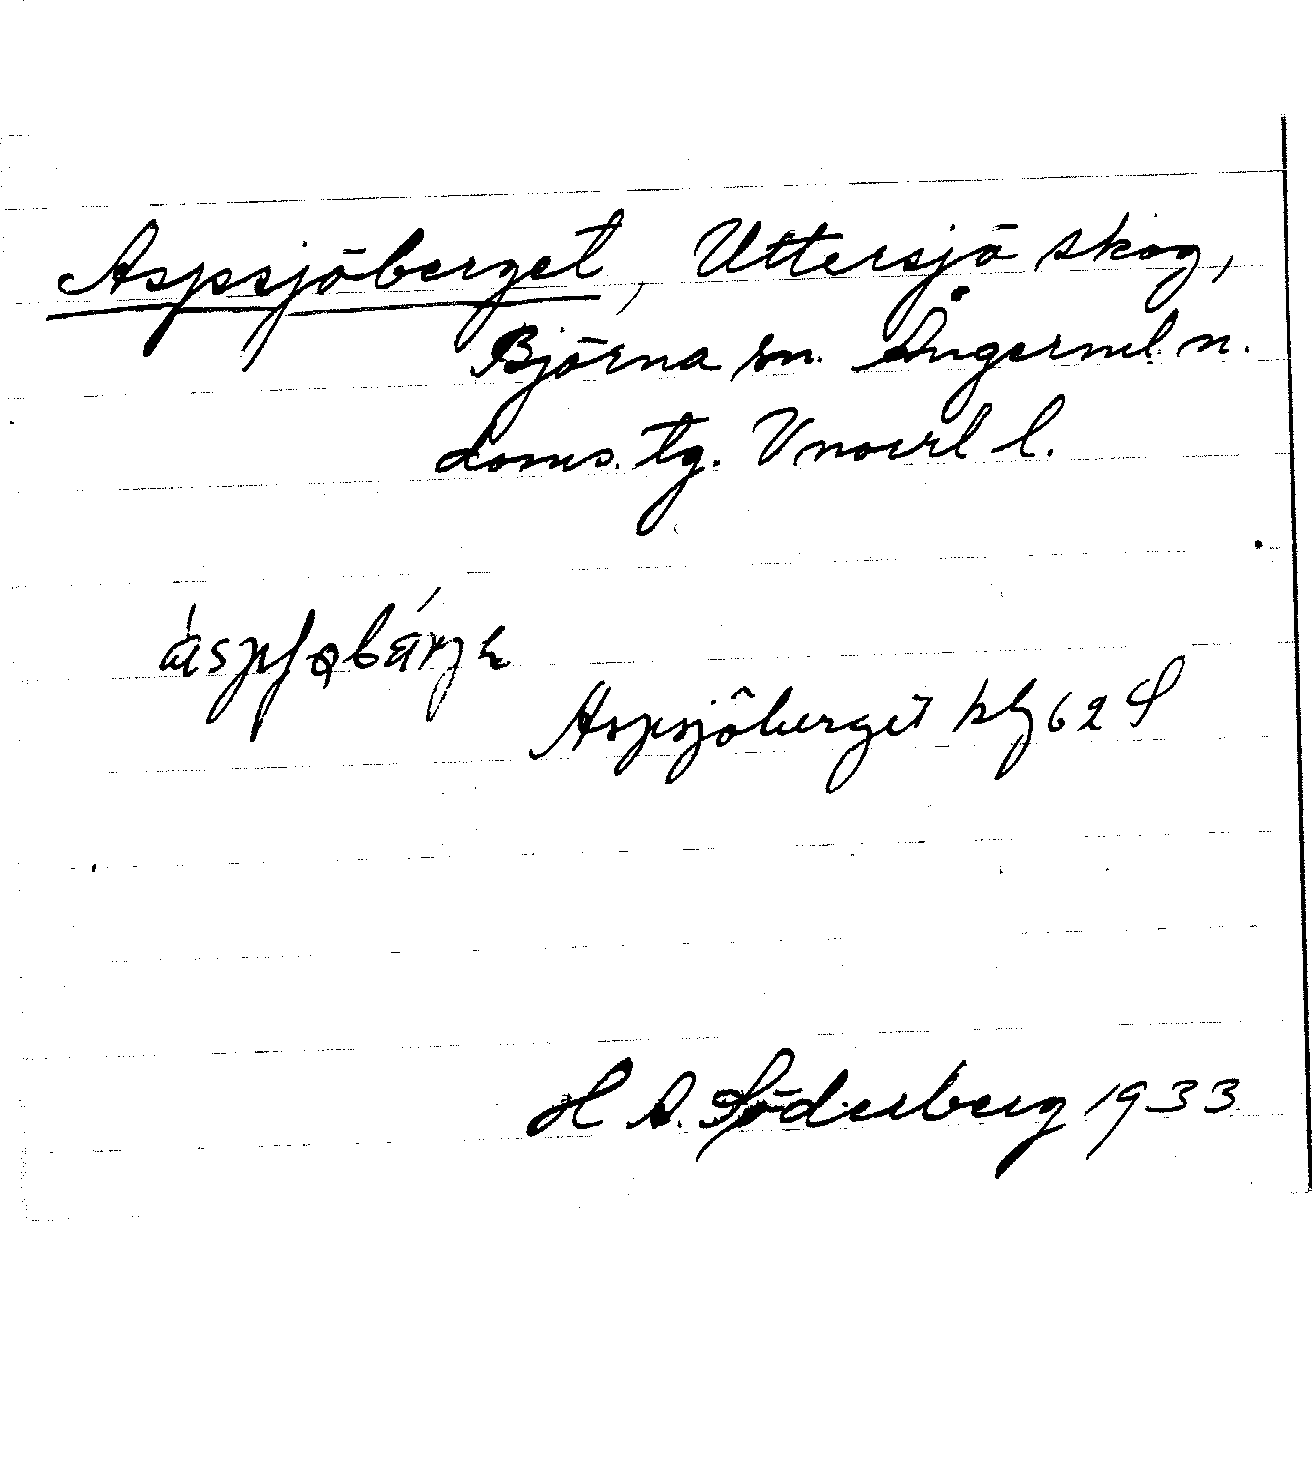 Aspsjöberget, Uttersjö skog,
Björna sn. Ångerml n.
doms. tg. Vnorrl l.
Aspsjöberget kbl 62 S
H A. Söderberg 1933